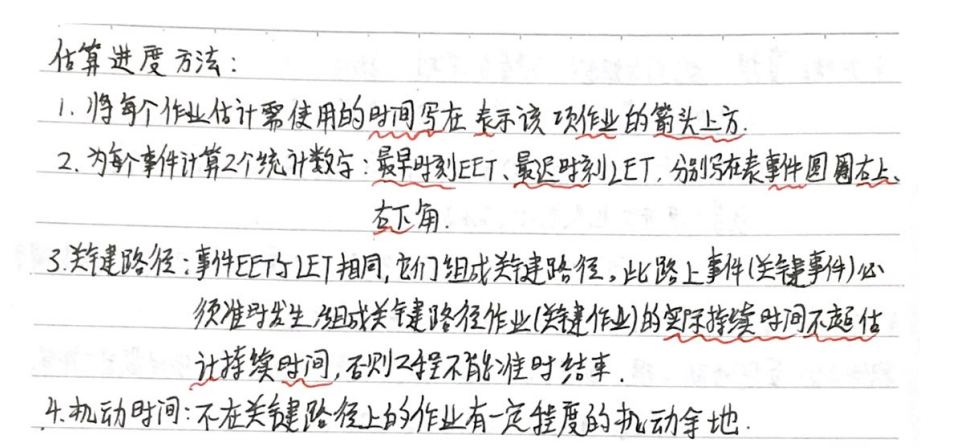 估算进度方法：
1. 将每个作业估计需使用的时间写在表示该项作业的箭头上方.
2. 为每个事件计算2个统计数字：最早时刻EET、最迟时刻LET，分别写在表事件圆圈右上、
右下角.
3.关键路径：事件EET与LET相同，它们组成关键路径。此路上事件(关键事件)必
须准时发生,组成关键路径作业(关键作业)的实际持续时间不超估
计持续时间,否则工程不能准时结束.
4.机动时间:不在关键路径上的作业有一定程度的机动余地.